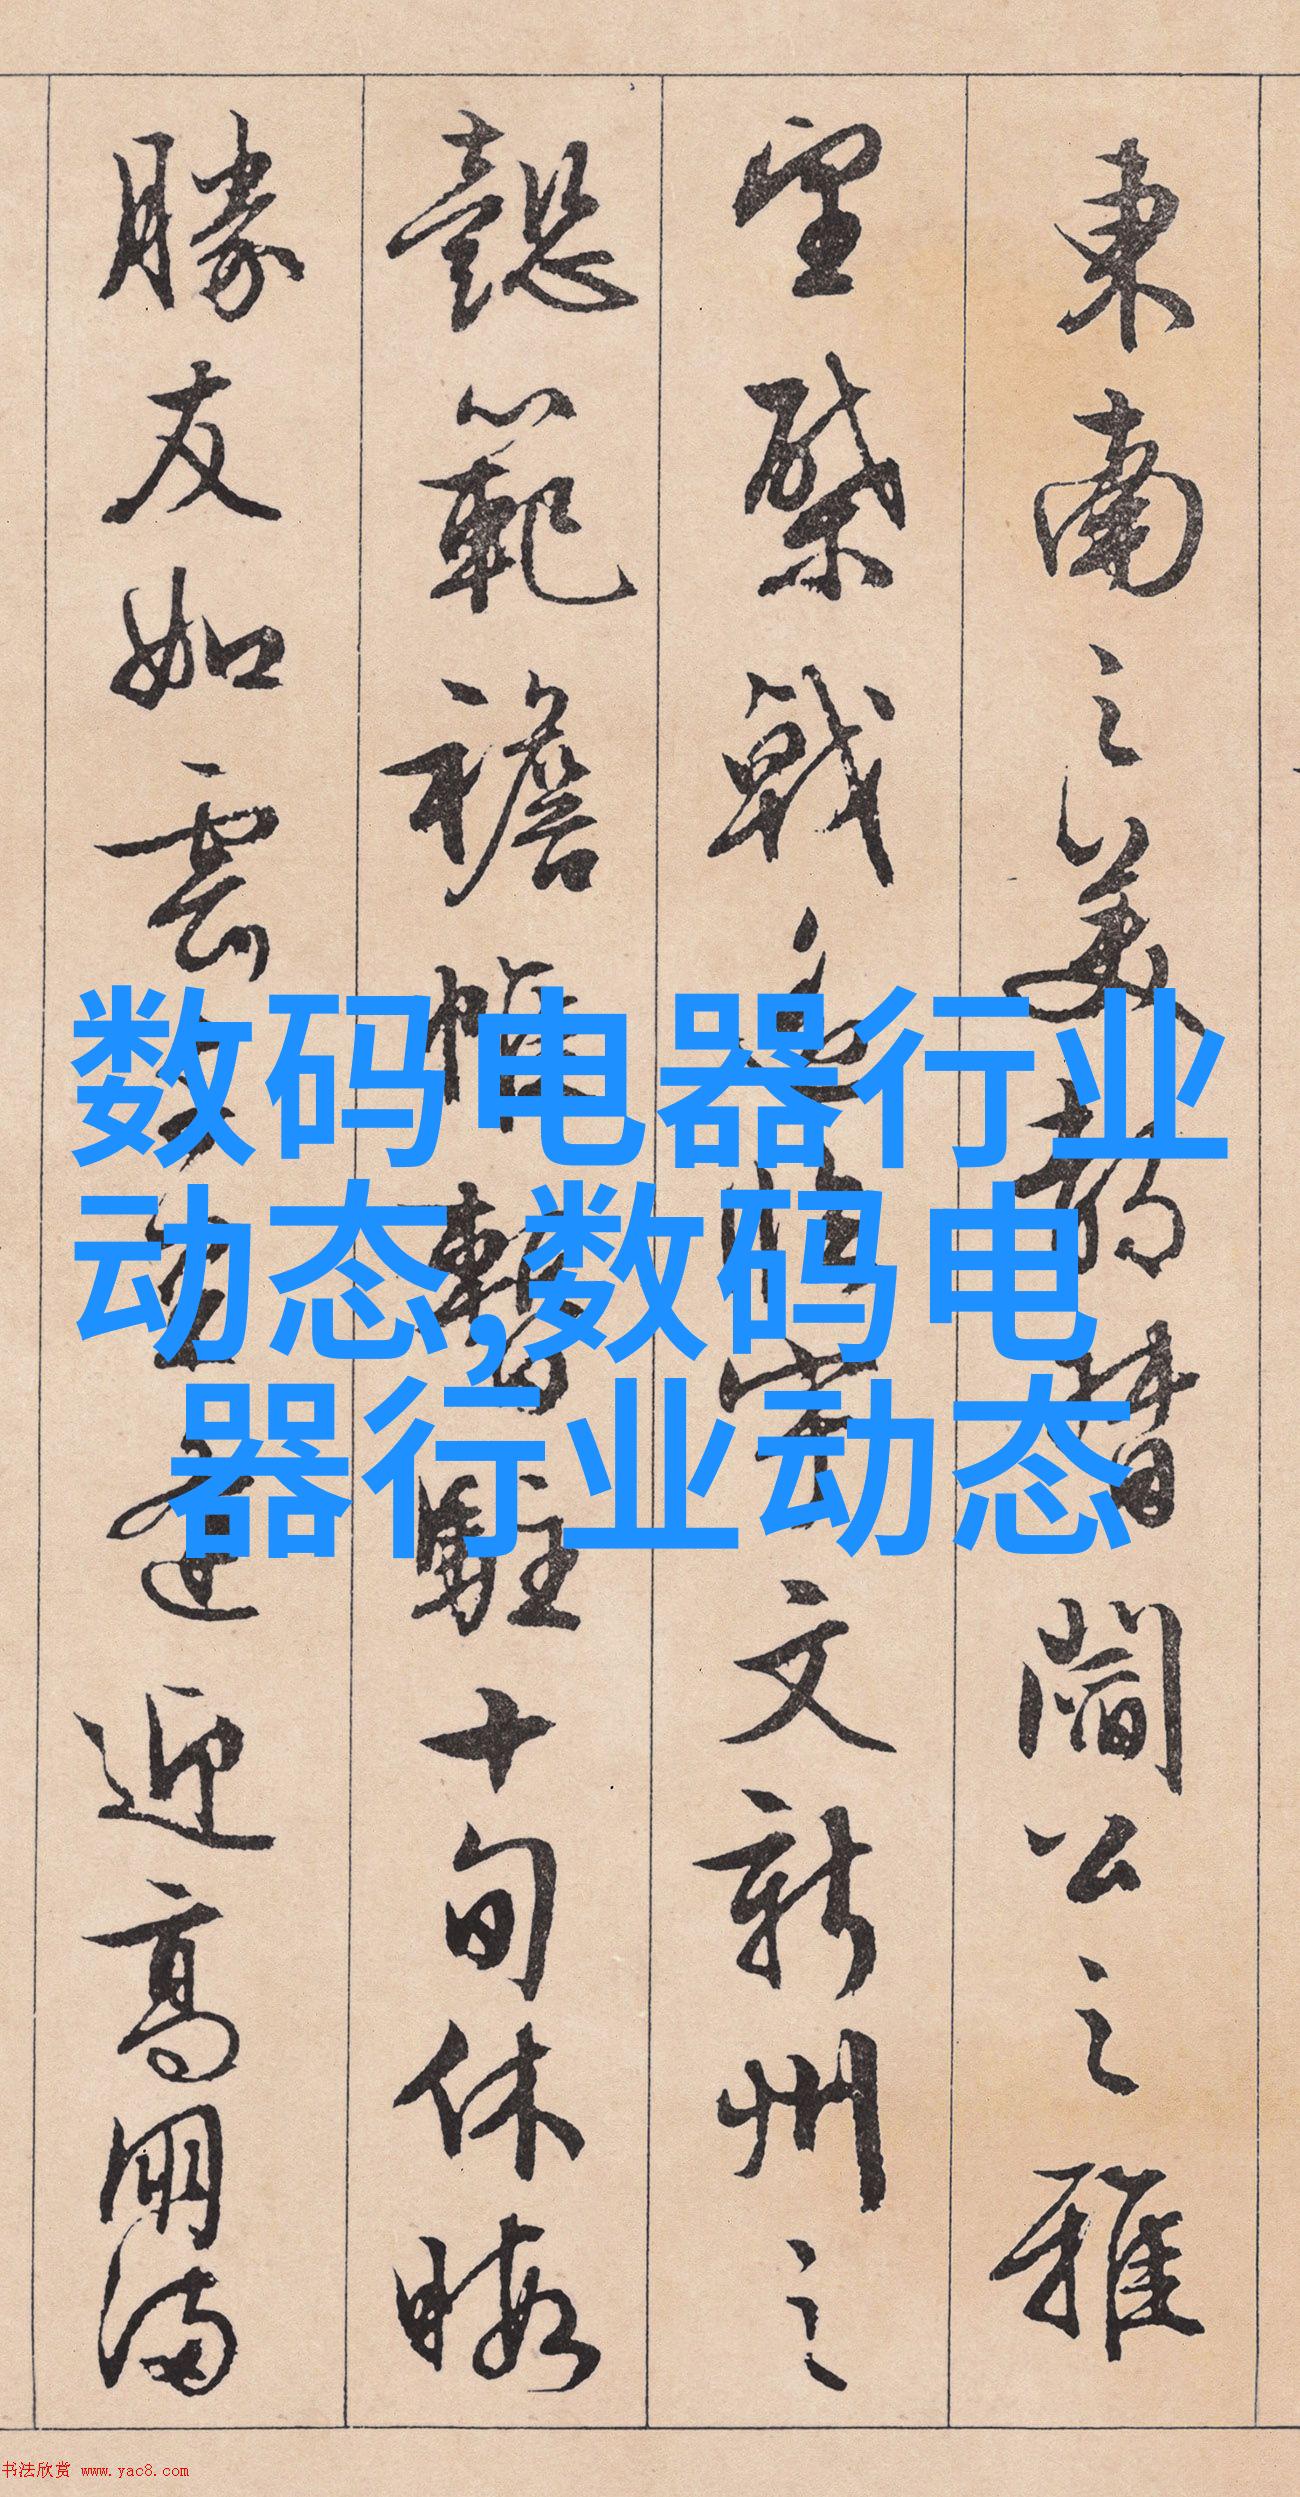 東南之美撫昔闇公之雅
望棨戟之臨宇文新州之
懿範襜帷暫駐十旬休暇
勝友如雲千里逢迎高朋滿
数码电器行业
动态,数码电
器行业动态
书法欣赏 www.yac8.com